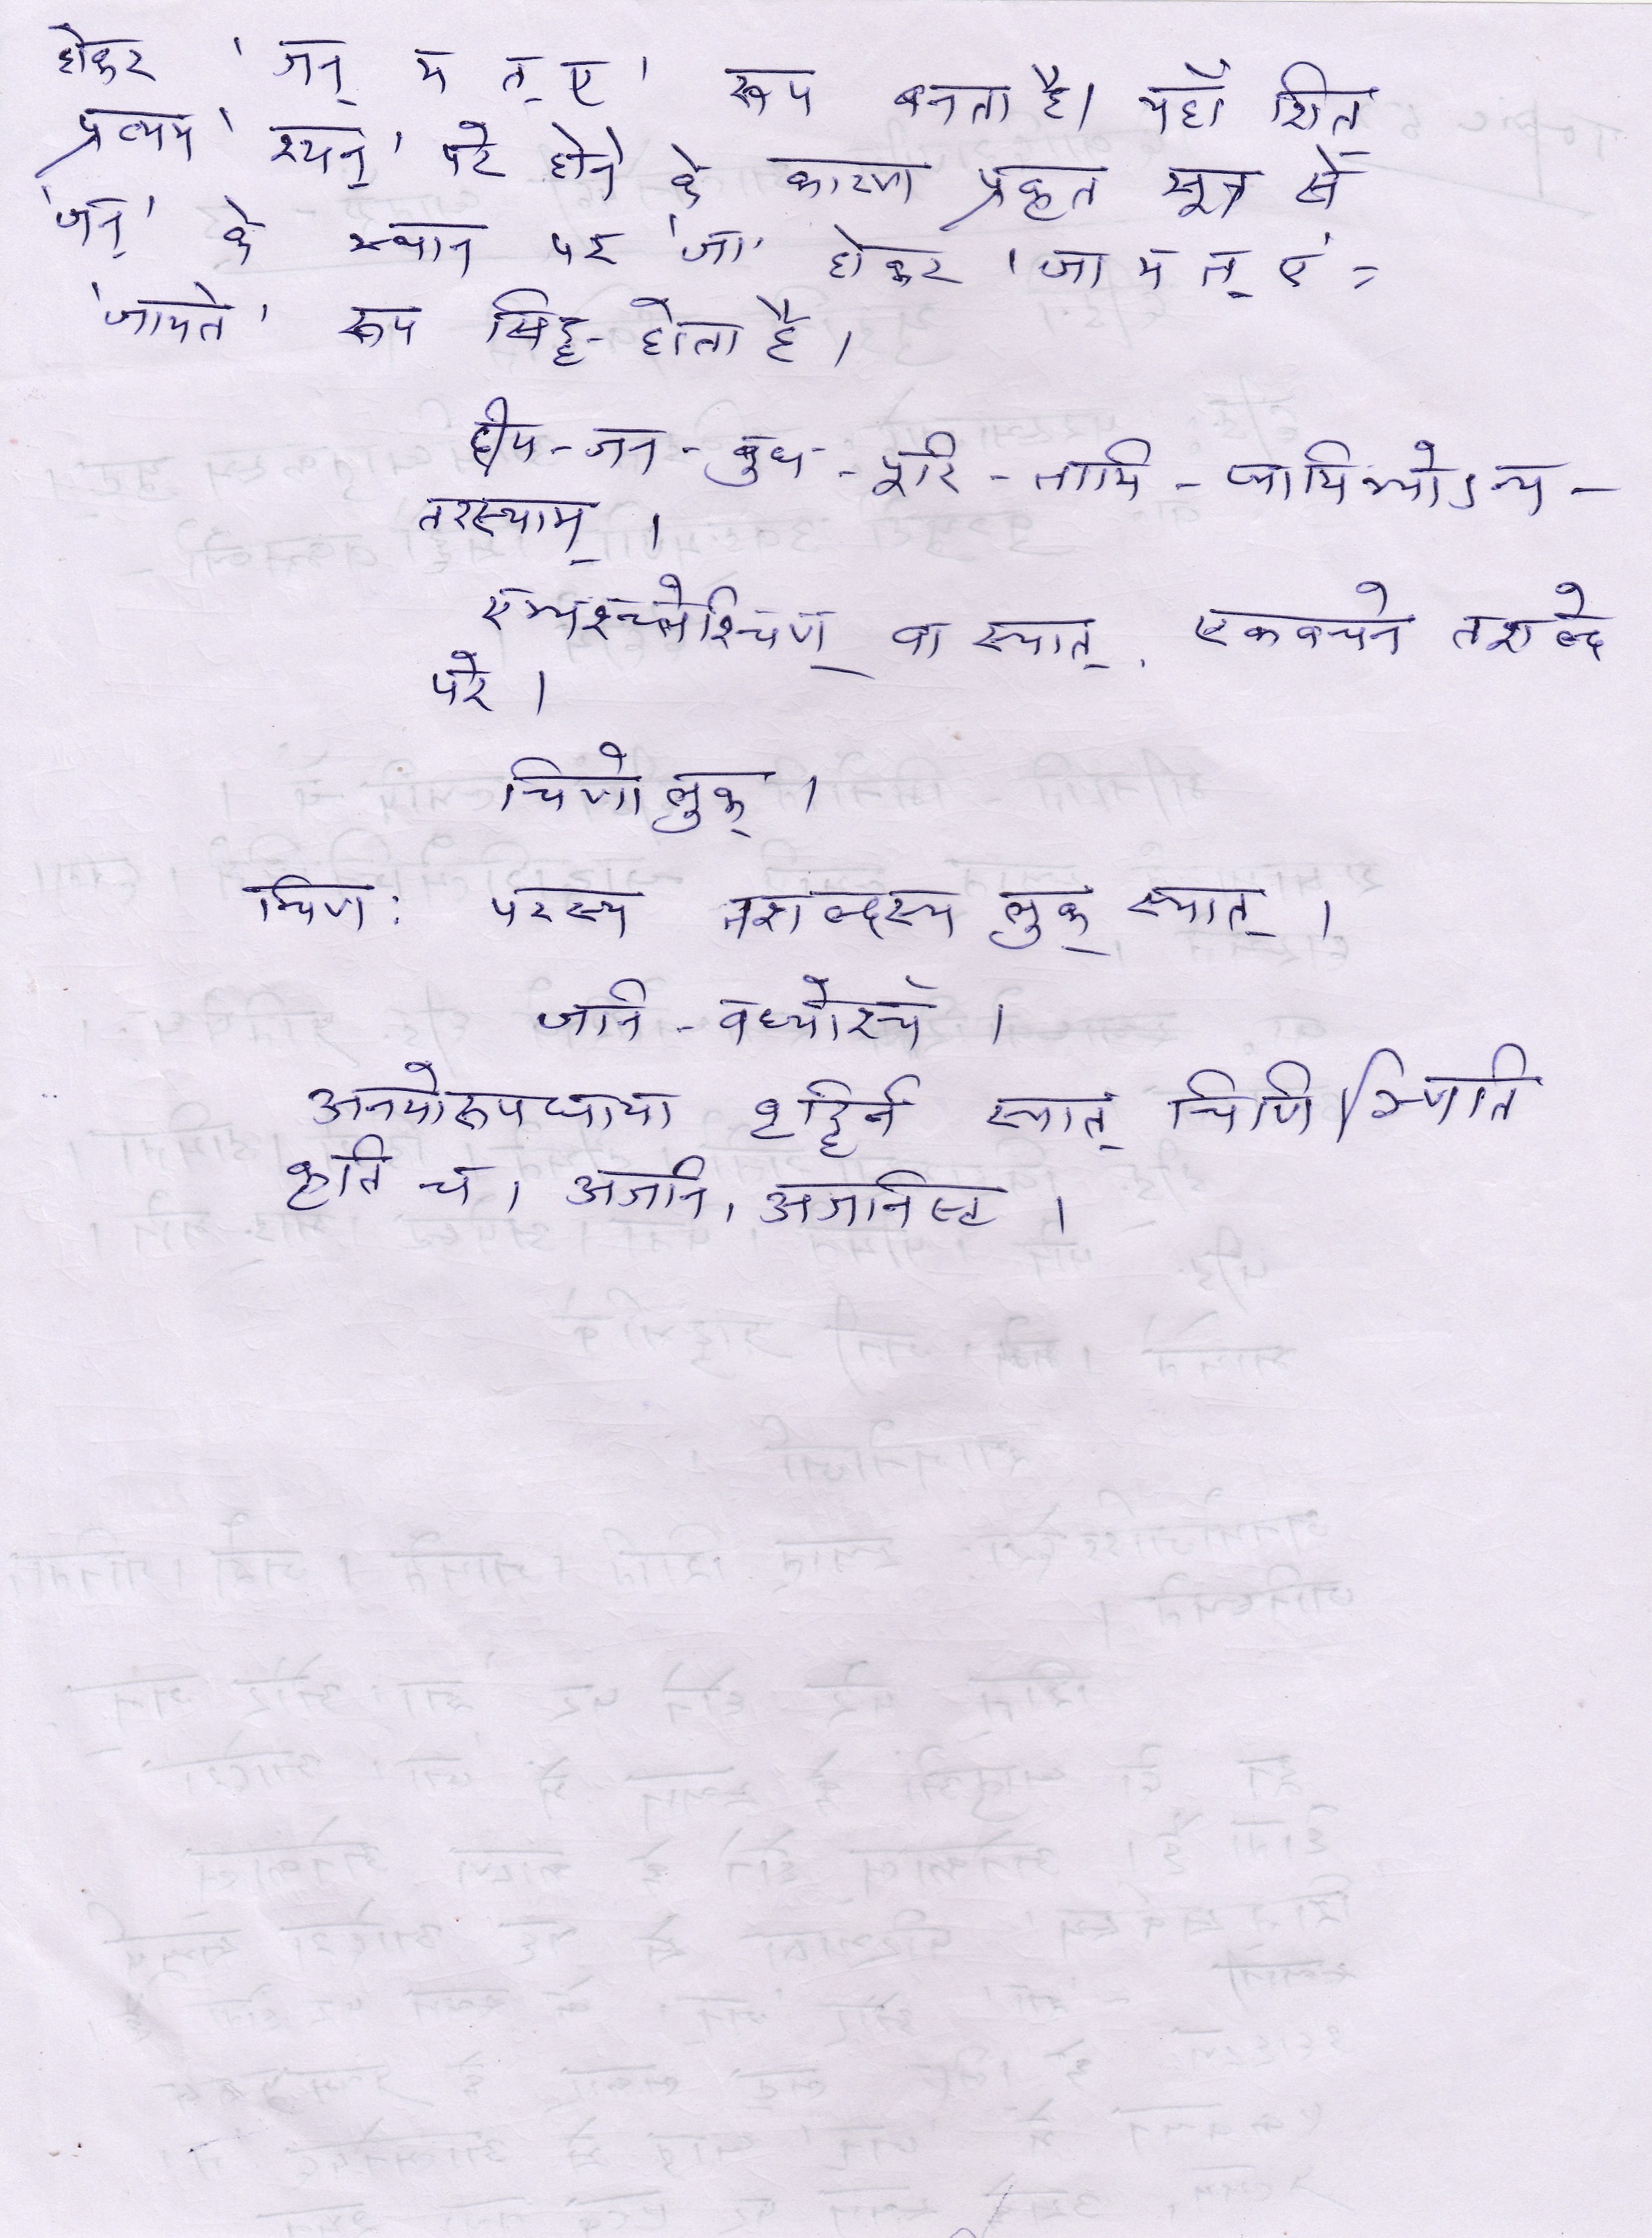 होकर 'जन् य त् ए' रूप बनता है। यहाँ शित्
प्रत्यय 'श्यन्' परे होने के कारण प्रकृत सूत्र से
'जन्' के स्थान पर 'जा' होकर 'जा य त् ए' =
'जायते' रूप सिद्ध होता है।
दीप-जन-बुध-पूरि-तायि-प्यायिभ्योऽन्य-
तरस्याम्।
एभ्यश्च्लेश्चिण् वा स्यात्, एकवचने तशब्दे
परे।
चिणो लुक्।
चिणः परस्य तशब्दस्य लुक् स्यात्।
जनि-वध्योश्च।
अनयोरुपधाया वृद्धिर्न स्यात् चिणि ञ्णिति
कृति च। अजनि, अजनिष्ट।